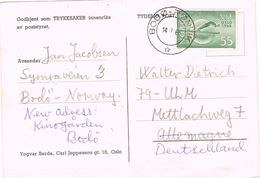 Godkjent som TRYKKSAKER innenriks
av poststyret.
TYDE
BODØ
14-1
OSLO
55
Avsender Jan Jacobsen
Synnaveien 3
Bodö - Norway
New Adress:
Kinogården
Bodö
Walter Dietrich
79 - Ulm
Mettlachweg 7
Allemagne
Deutschland
Yngvar Barda, Carl Jeppesens gt. 18, Oslo